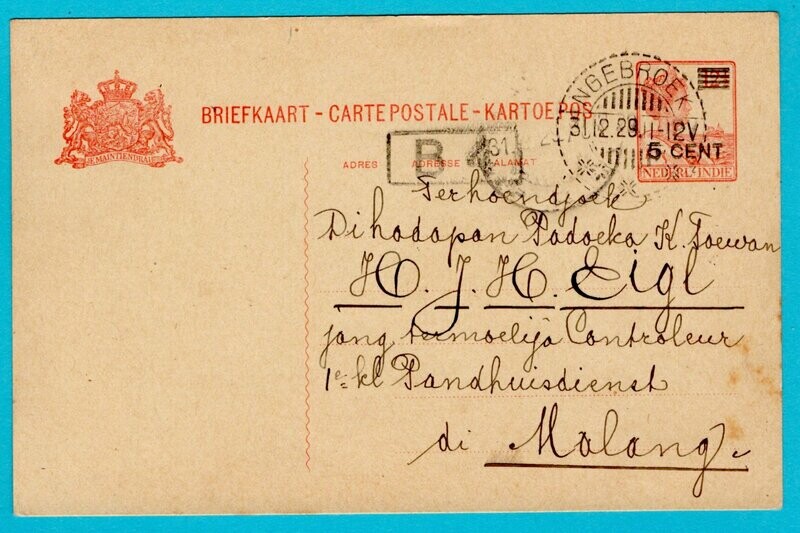 BRIEFKAART - CARTE POSTALE - KARTOE POS
JE MAINTIENDRAI
ADRES ADRESSE ALAMAT
B 4
31.
NGEBROEK
31.12.29.11-12V
5 CENT
NEDERL. INDIE
Terhoendjoek
Dihadapan Padoeka K. Toewan
H. J. H. Eigl
jang termoelija Controleur
1e kl Pandhuisdienst
di Malang.